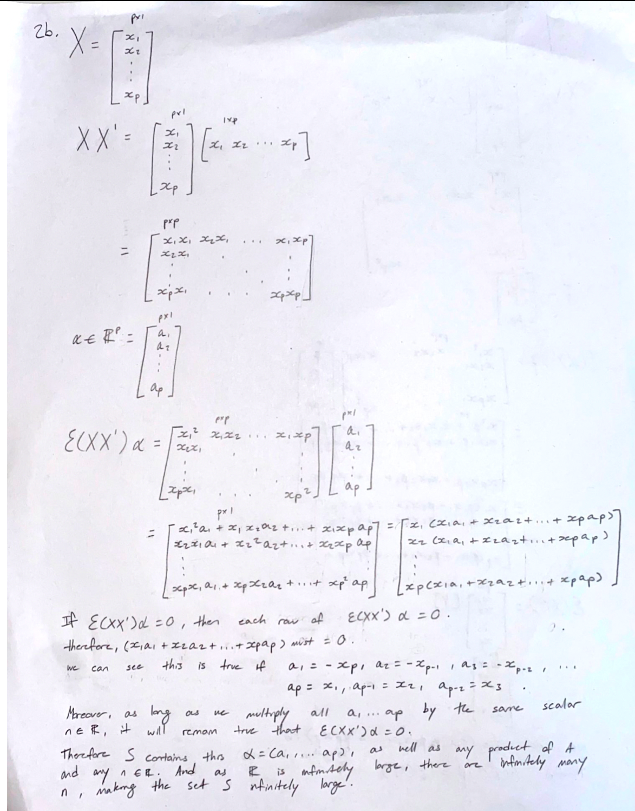 2b. X = [x₁ x₂ ⋮ xₚ] p×1
XX' = p×1 [x₁ x₂ ⋮ xₚ] 1×p [x₁ x₂ ... xₚ]
= p×p [x₁x₁ x₂x₁ ... x₁xₚ
x₂x₁ ⋮
⋮
xₚx₁ . . . xₚxₚ]
α ∈ ℝᵖ = p×1 [a₁ a₂ ⋮ aₚ]
Ɛ(XX')α = p×p [x₁² x₁x₂ ... x₁xₚ p×1 [a₁
x₂x₁ a₂
⋮ ⋮
xₚx₁ . . . xₚ²] aₚ]
p×1
= [x₁²a₁ + x₁x₂a₂ + ... + x₁xₚaₚ = [x₁(x₁a₁ + x₂a₂ + ... + xₚaₚ)
x₂x₁a₁ + x₂²a₂ + ... + x₂xₚaₚ x₂(x₁a₁ + x₂a₂ + ... + xₚaₚ)
⋮ ⋮
xₚx₁a₁ + xₚx₂a₂ + ... + xₚ²aₚ] xₚ(x₁a₁ + x₂a₂ + ... + xₚaₚ)]
If Ɛ(XX')α = 0, then each row of Ɛ(XX')α = 0.
therefore, (x₁a₁ + x₂a₂ + ... + xₚaₚ) must = 0.
we can see this is true if a₁ = -xₚ, a₂ = -xₚ₋₁, a₃ = -xₚ₋₂, ...
aₚ = x₁, aₚ₋₁ = x₂, aₚ₋₂ = x₃.
Moreover, as long as we multiply all a₁ ... aₚ by the same scalar
n ∈ ℝ, it will remain true that Ɛ(XX')α = 0.
Therefore S contains this α = (a₁, ... aₚ), as well as any product of A
and any n ∈ ℝ. And as ℝ is infinitely large, there are infinitely many
n, making the set S nfinitely large.